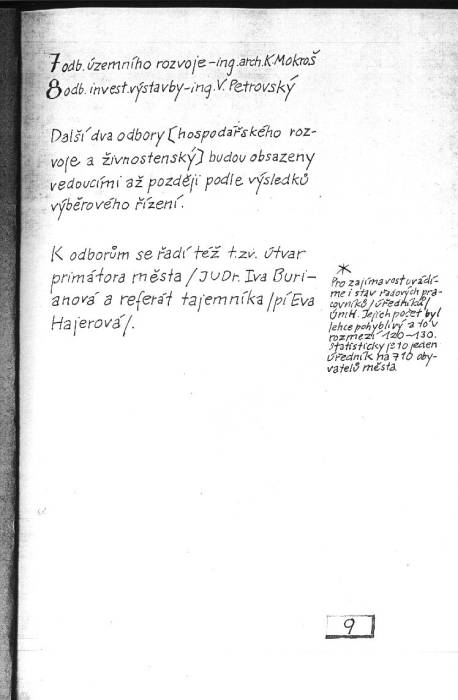 7 odb. územního rozvoje – ing. arch. K Mokroš
8 odb. invest. výstavby – ing. V. Petrovský
Další dva odbory [hospodařského roz-
voje a živnostenský] budou obsazeny
vedoucími až později podle výsledků
výběrového řízení.
K odborům se řadí též t.zv. útvar
primátora města /JUDr. Iva Buri-
anová a referát tajemníka /pí Eva
Hajerová/.
*
Pro zajímavost uvádí-
me i stav řadových pra-
covníků /úředníků/
ÚmH. Jejich počet byl
lehce pohyblivý a to v
rozmezí 120–130.
Statisticky je to jeden
úředník na 710 oby-
vatelů města
9